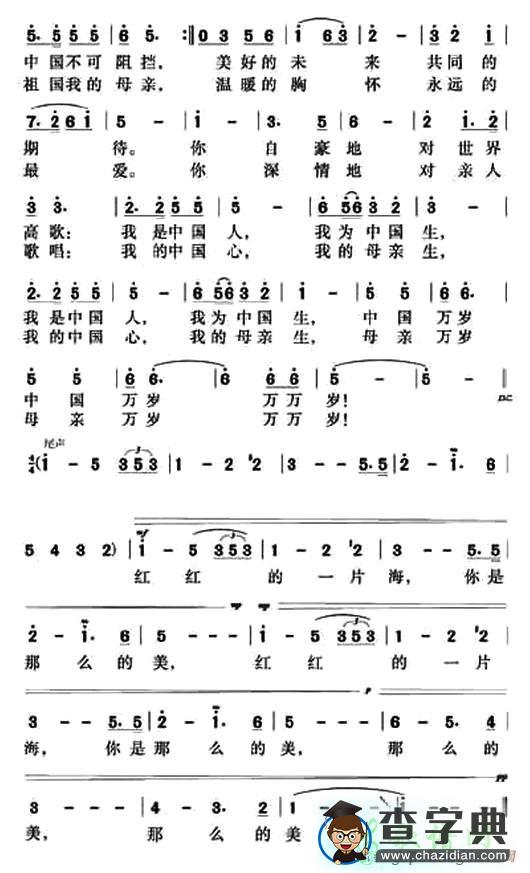 5. 5 5 5 5 | 6 5. :|| 0 3 5 6 | 1 6 3 | 2 - | 3 2 1 |
中国不可 阻挡， 美好的 未 来 共同的
祖国我的 母亲， 温暖的 胸 怀 永远的
7. 2 6 1 | 5 - | 1 - | 3. 5 | 2 - | 2 1. |
期 待。你 自 豪地 对 世界
最 爱。你 深 情地 对 亲人
3 3. | 2. 2 5 5 | 5 - | 6 5 6 3 2 | 3 - |
高歌： 我 是中国 人， 我 为中国 生，
歌唱： 我 的中国 心， 我 的母亲 生，
2. 2 5 5 | 5 - | 6 5 6 3 2 | 1 - | 5 5 | 6 6. |
我 是中国 人， 我 为中国 生， 中 国 万岁
我 的中国 心， 我 的母亲 生， 母 亲 万岁
5 5 | 6 6. | 6 6 6 6 | 5 - | 5 - ||
中 国 万 岁 万万 岁！ D.C.
母 亲 万 岁 万万 岁！
尾声
(1 - 5 3 5 3 | 1 - 2 2 | 3 - - 5. 5 | 2 - 1. 6 |
mf
5 4 3 2) | 1 - 5 3 5 3 | 1 - 2 2 | 3 - - 5. 5 |
红 红 的 一 片 海， 你是
2 - 1. 6 | 5 - - - | 1 - 5 3 5 3 | 1 - 2 2 |
那 么的 美， 红 红 的 一 片
3 - - 5. 5 | 2 - 1. 6 | 5 - - - | 6 - 5. 4 |
海， 你是 那 么的 美， 那 么的
3 - - - | 4 - 3. 2 | 1 - - -
美， 那 么的 美
查字典
www.chazidian.com